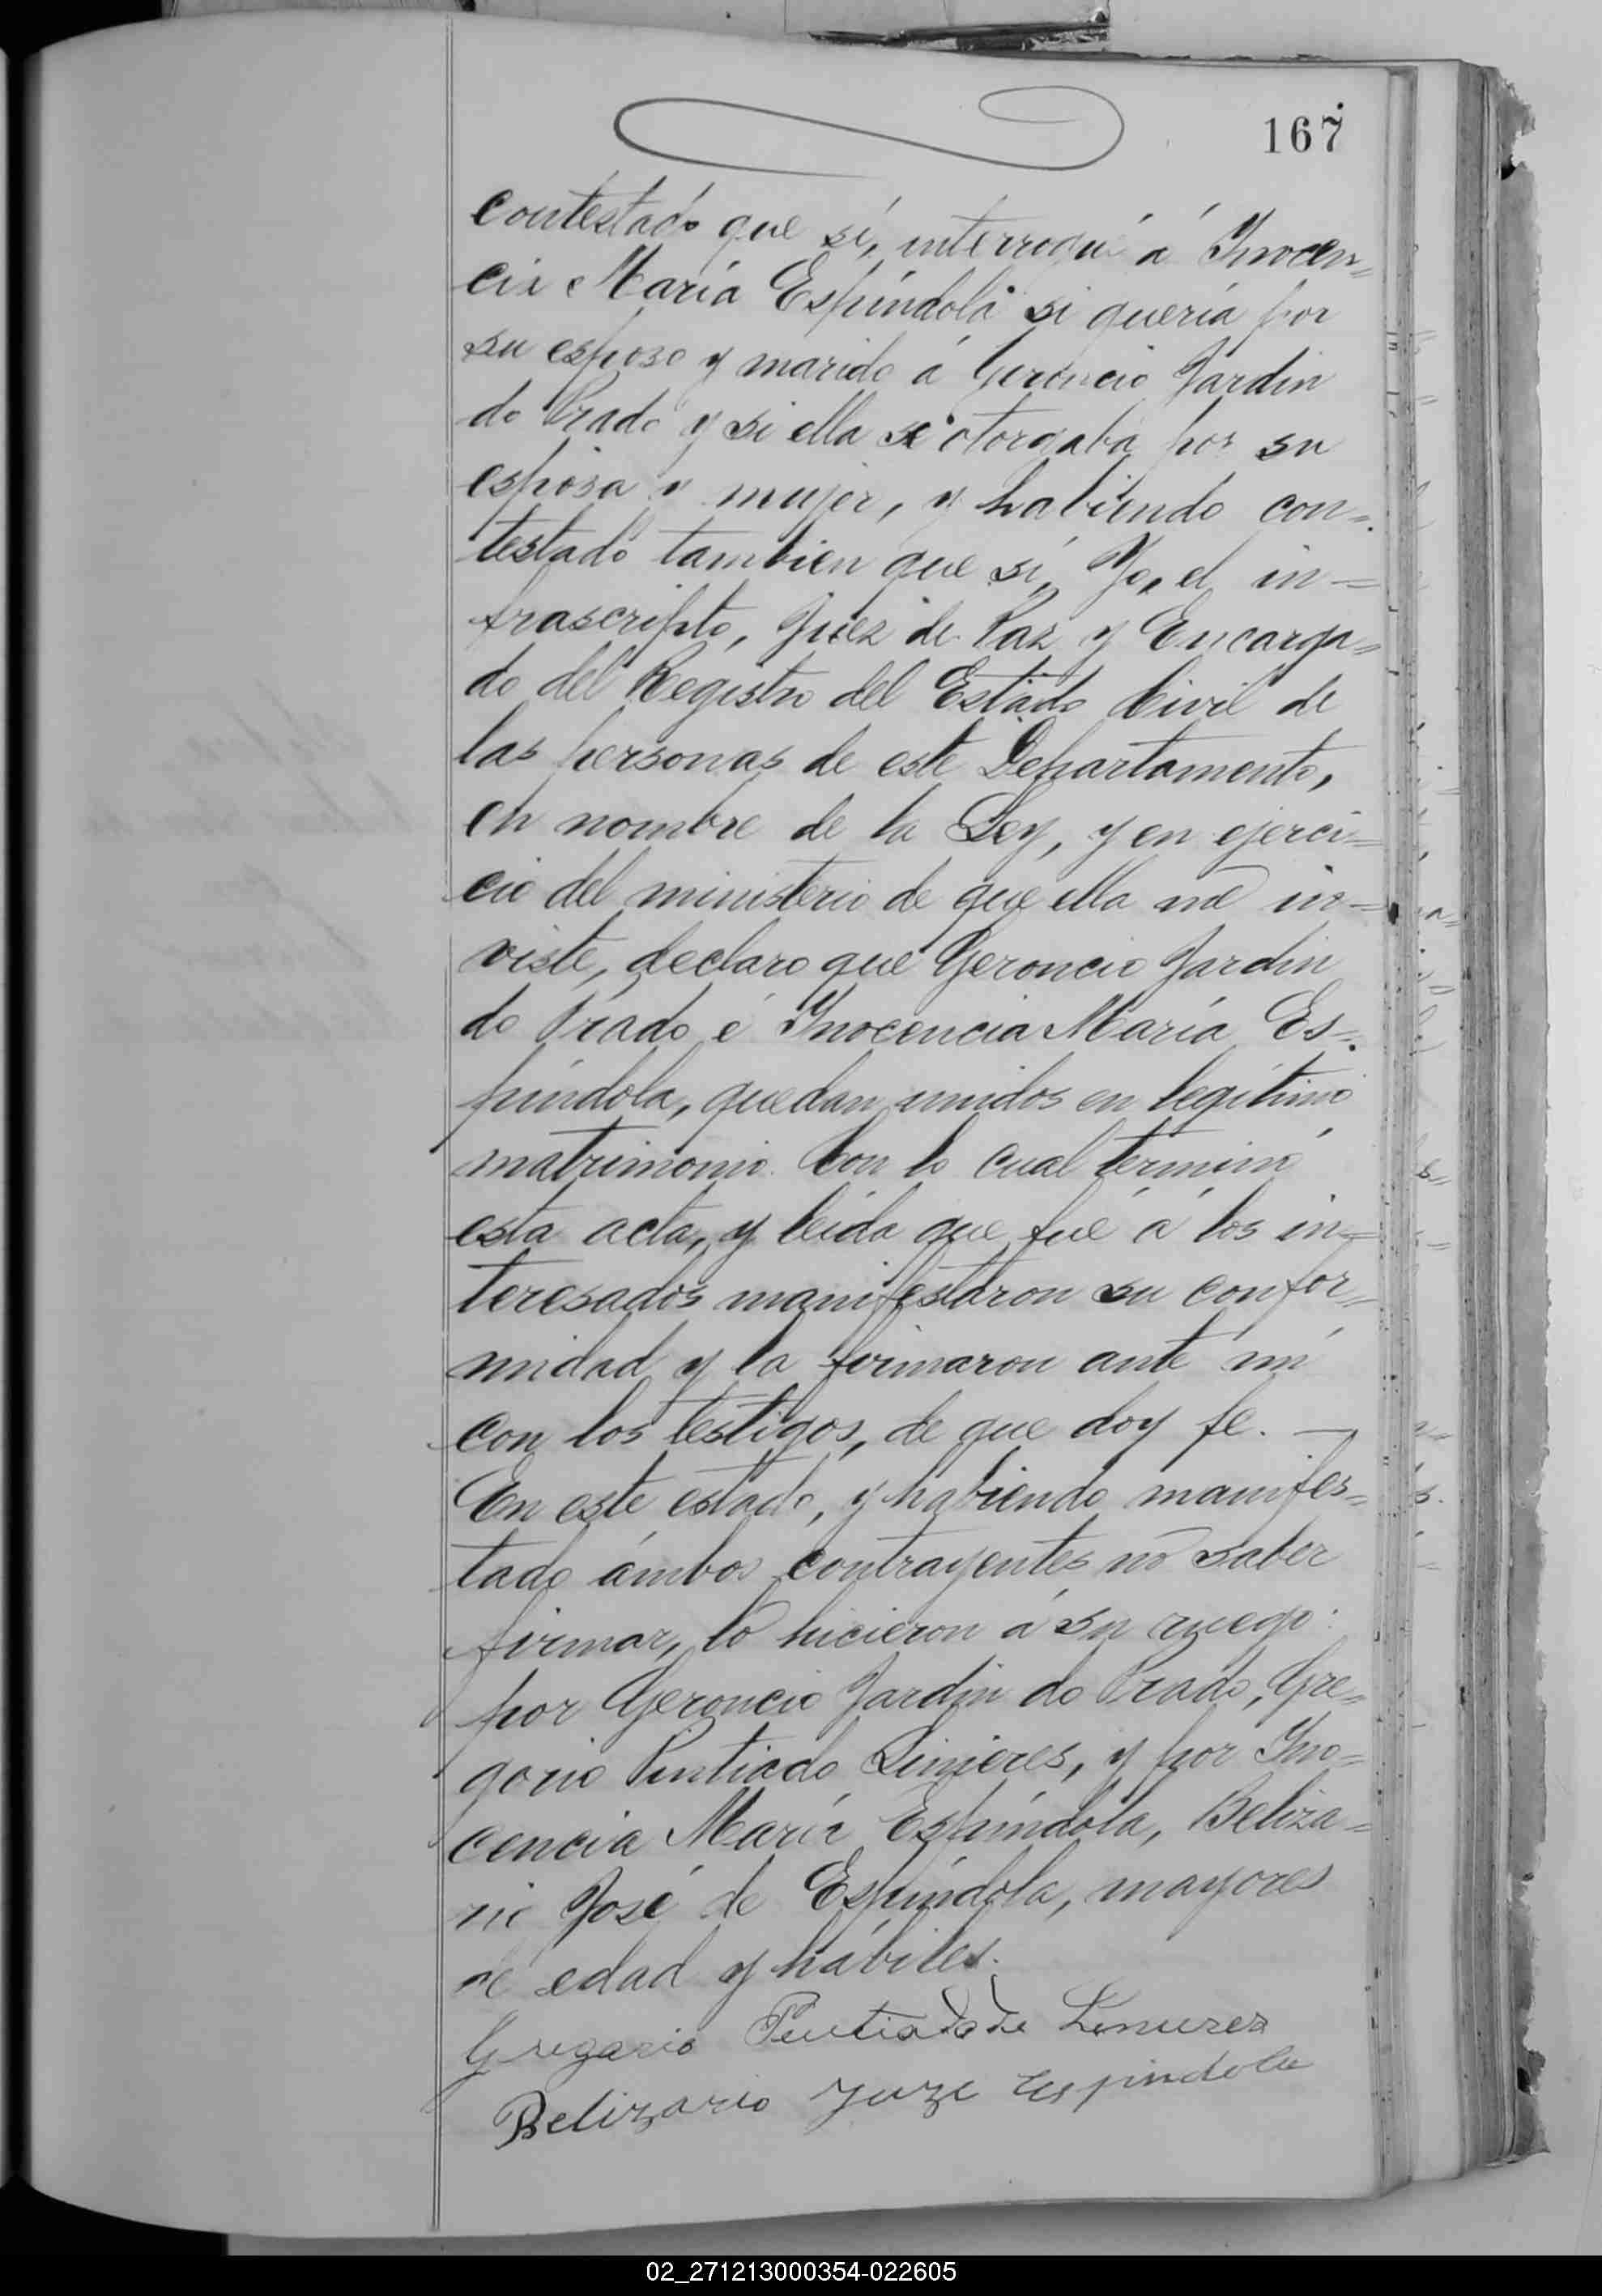 167
contestado que sí, interrogué á Inocen=
cia María Espíndola si quería por
su esposo y marido á Geroncio Jardin
do Prado y si ella se otorgaba por su
esposa y mujer, y habiendo con=
testado tambien que sí, Yo, el in=
frascripto, Juez de Paz y Encarga=
do del Registro del Estado Civil de
las personas de este Departamento,
en nombre de la Ley, y en ejerci=
cio del ministerio de que ella me in=
viste, declaro que Geroncio Jardin
do Prado é Inocencia María Es=
píndola, quedan unidos en legítimo
matrimonio. Con lo cual terminó
esta acta, y leida que fué á los in=
teresados manifestaron su confor=
midad y la firmaron ante mí
con los testigos, de que doy fe. —
En este estado, y habiendo manifes=
tado ámbos contrayentes no saber
firmar, lo hicieron á su ruego:
por Geroncio Jardin do Prado, Gre=
gorio Pintiado Linieres, y por Ino=
cencia María Espíndola, Beliza=
rio José de Espíndola, mayores
de edad y hábiles.
Gregario
Belizario Juze Espindola
02_271213000354-022605